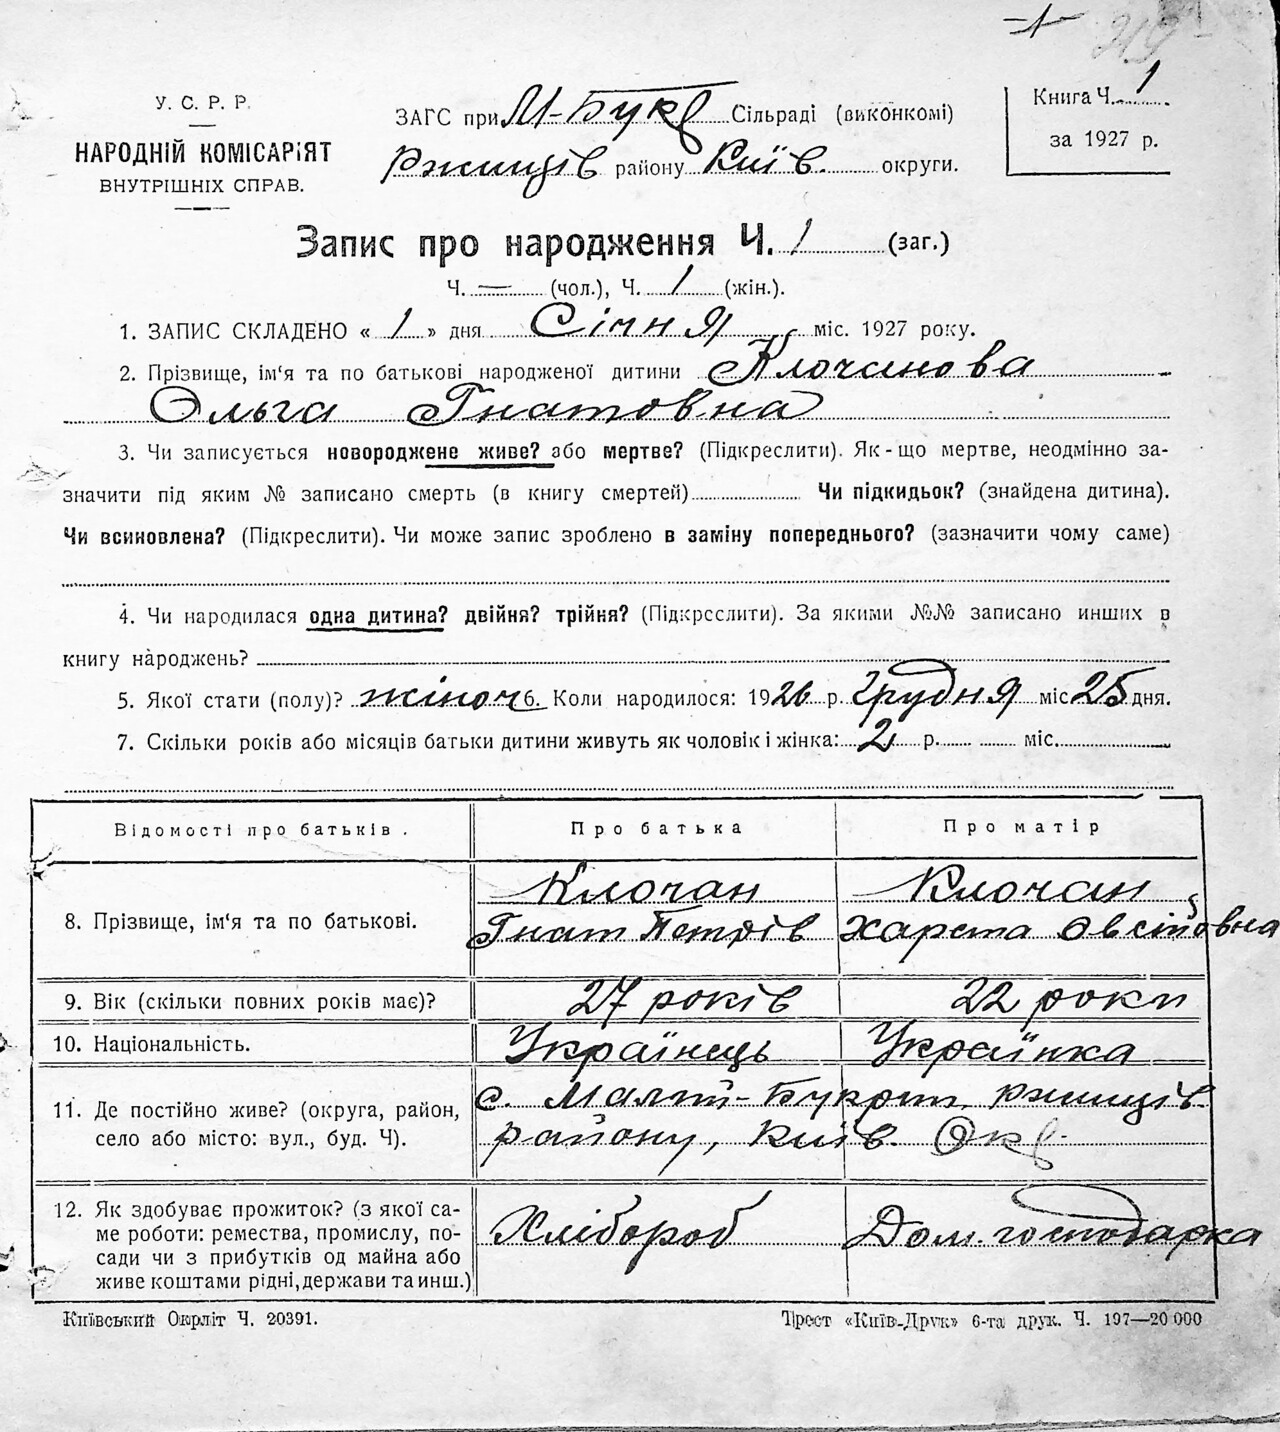 — 1 —
219
У. С. Р. Р.
НАРОДНІЙ КОМІСАРІЯТ
ВНУТРІШНІХ СПРАВ.
ЗАГС при М-Букр Сільраді (виконкомі)
Ржищів району Київ. округи.
Книга Ч. 1
за 1927 р.
Запис про народження Ч. 1 (заг.)
Ч. — (чол.), Ч. 1 (жін.).
1. ЗАПИС СКЛАДЕНО « 1 » дня Січня міс. 1927 року.
2. Прізвище, ім'я та по батькові народженої дитини Клочанова
Ольга Гнатовна
3. Чи записується новороджене живе? або мертве? (Підкреслити). Як-що мертве, неодмінно за-
значити під яким № записано смерть (в книгу смертей) Чи підкидьок? (знайдена дитина).
Чи всиновлена? (Підкреслити). Чи може запис зроблено в заміну попереднього? (зазначити чому саме)
4. Чи народилася одна дитина? двійня? трійня? (Підкреслити). За якими №№ записано инших в
книгу народжень?
5. Якої стати (полу)? жіноч 6. Коли народилося: 1926 р. Грудня міс 25 дня.
7. Скільки років або місяців батьки дитини живуть як чоловік і жінка: 2 р. міс.
Відомості про батьків. Про батька Про матір
Клочан Клочан
8. Прізвище, ім'я та по батькові. Гнат Петрів Харста Овсіповна
9. Вік (скільки повних років має)? 27 років 22 роки
10. Національність. Українець Українка
11. Де постійно живе? (округа, район, с. Малий-Букрин, Ржищів.
село або місто: вул., буд. Ч). району, Київ. Окр.
12. Як здобуває прожиток? (з якої са-
ме роботи: ремества, промислу, по- Хлібороб Дом. господарка
сади чи з прибутків од майна або
живе коштами рідні, держави та инш.)
Київський Окрліт Ч. 20391. Трест «Київ-Друк» 6-та друк. Ч. 197—20 000